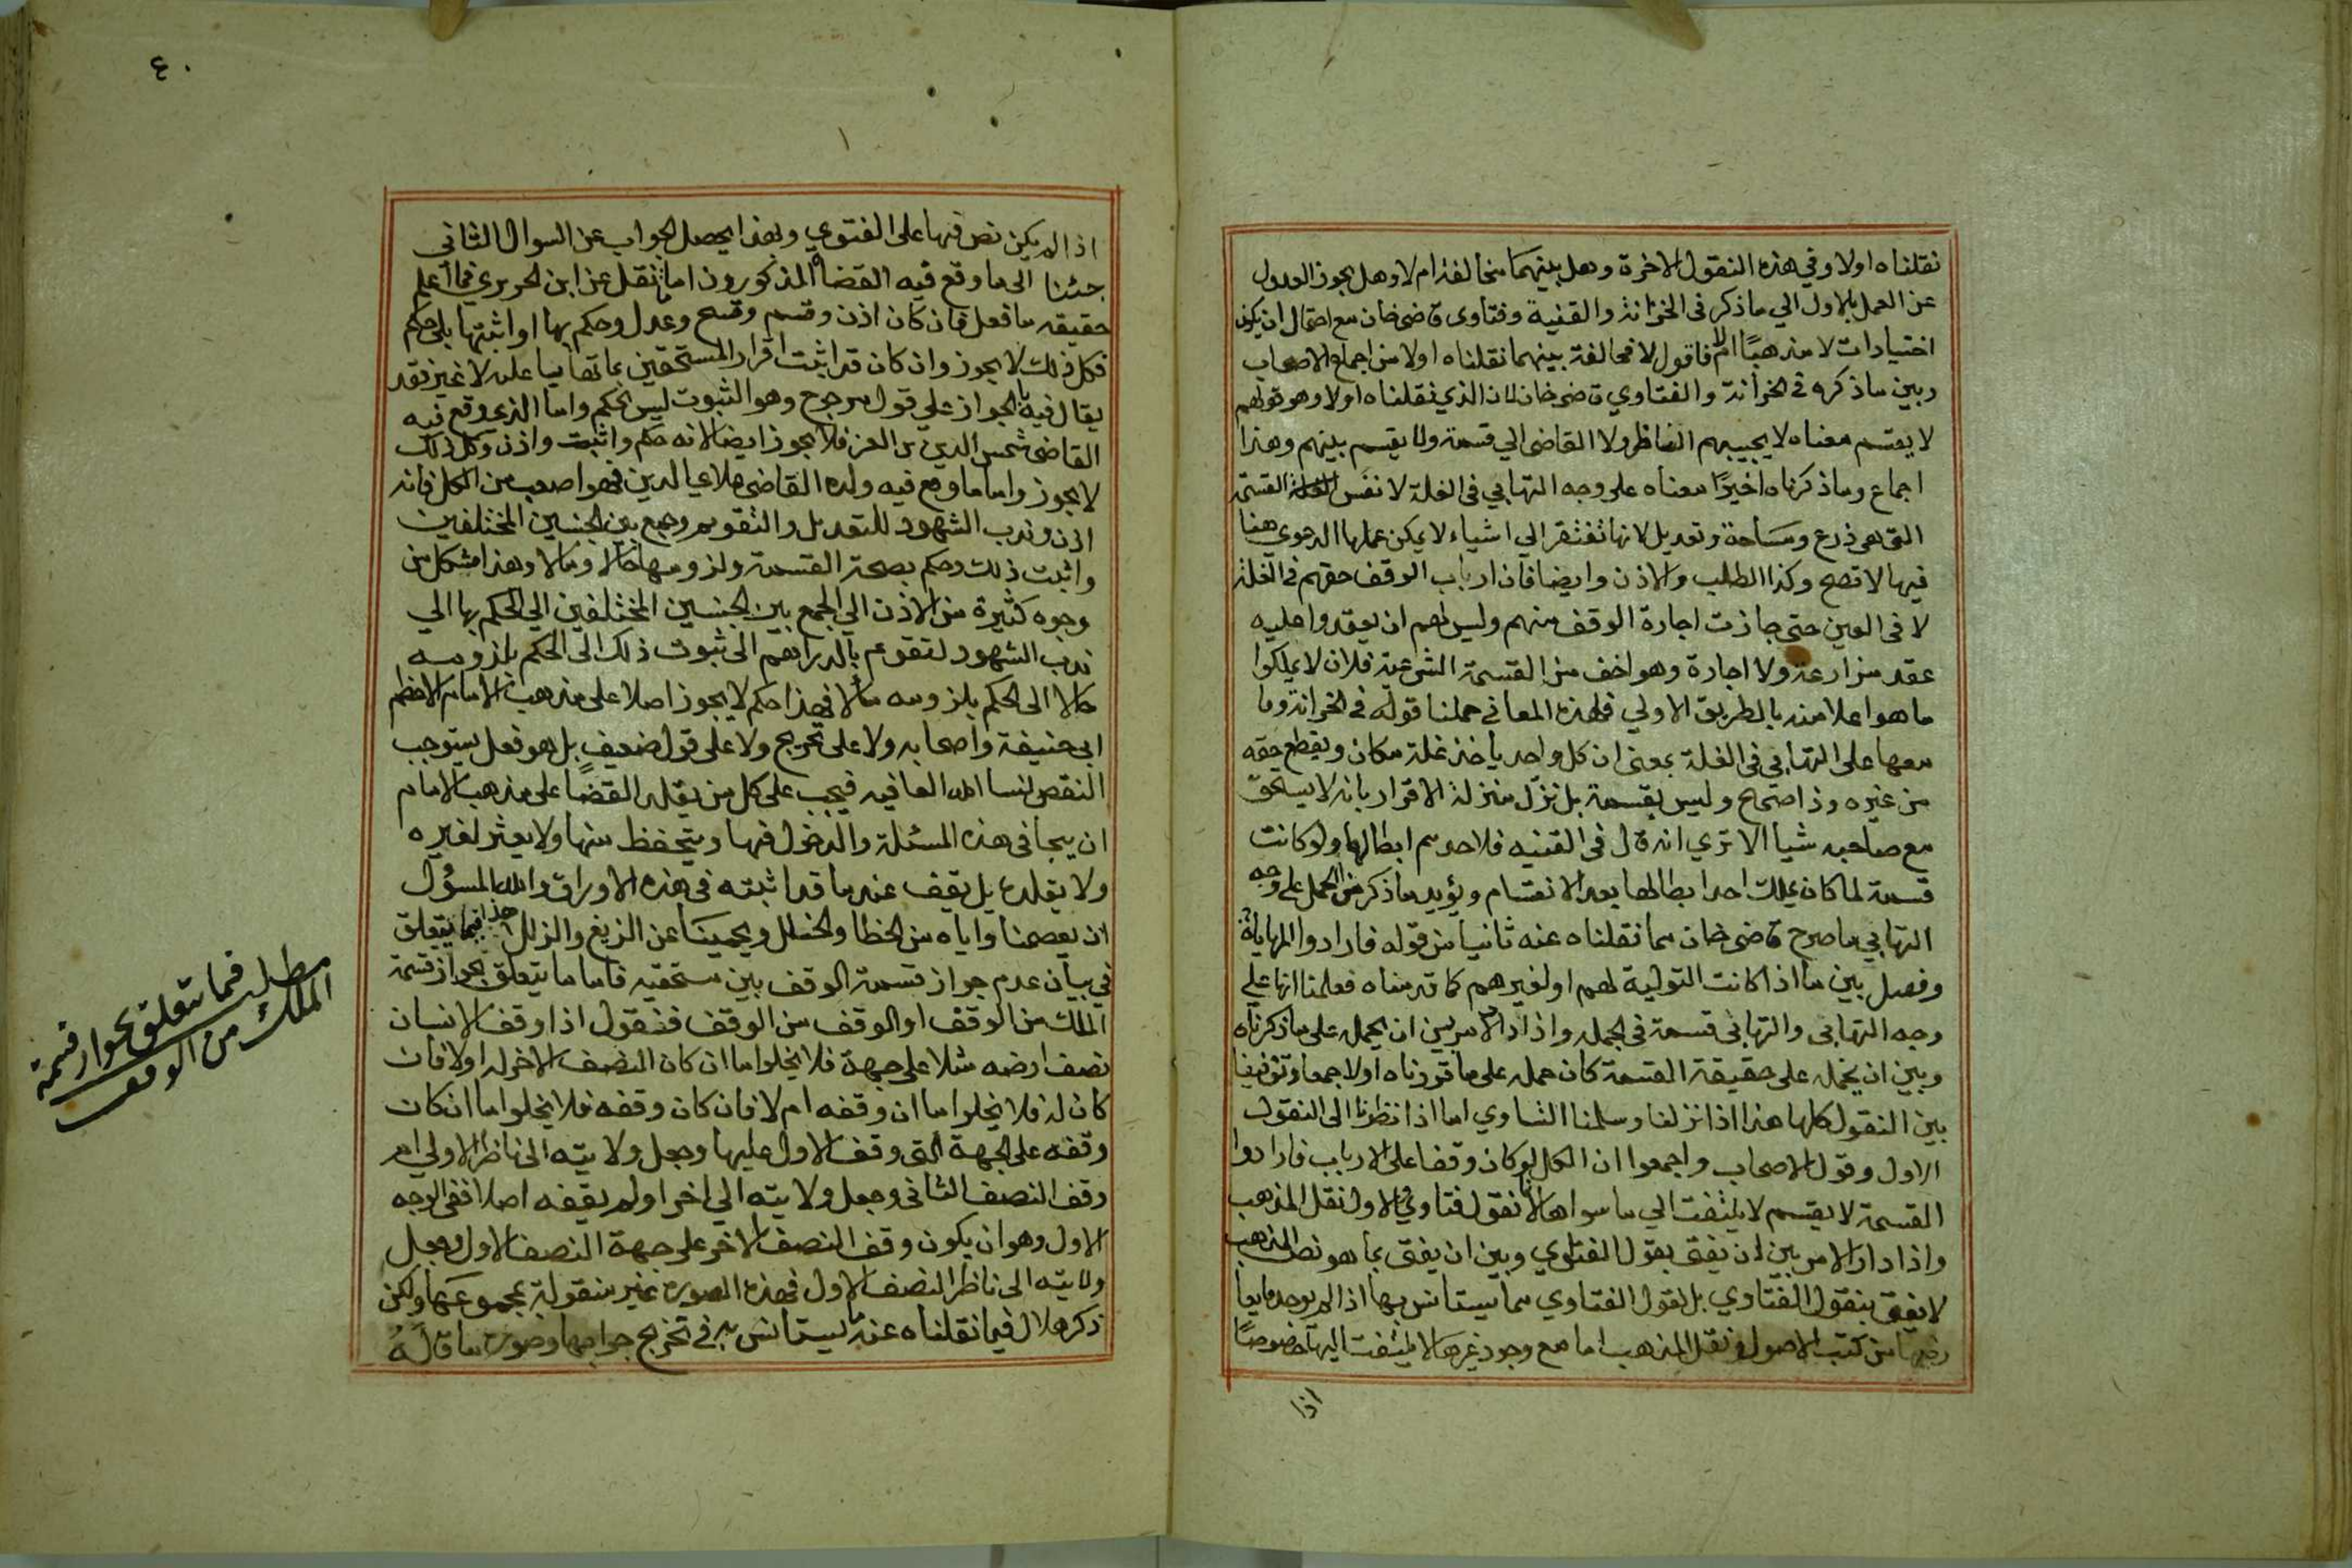 نقلناه اولا وفي هذه النقول الاخرة وهل بينهما مخالفة ام لا وهل يجوز العدول
عن العمل بالاول الي ما ذكر في الخزانة والقنية وفتاوى قاضي خان مع احتمال ان يكون
اختيارات لا مذهبًا ام لا فاقول لا مخالفة بينهما نقلناه اولا من اجماع الاصحاب
وبين ما ذكره في الخزانة والفتاوي قاضي خان لان الذي نقلناه اولا وهو قولهم
لا يقسم معناه لا يجيبهم الناظر ولا القاضي الي قسمة ولا يقسم بينهم وهذا
اجماع وما ذكرناه اخيرًا معناه علي وجه التهايي في الغلة لا نفس القسمة
التي هي ذرع ومساحة وتعديل لانها تفتقر الي اشياء لا يمكن عملها الدعوي هنا
فيها لا تصح وكذا الطلب والاذن وايضا فان ارباب الوقف حقهم في الغلة
لا في العين حتى جازت اجارة الوقف منهم وليس لهم ان يعقدوا عليه
عقد مزارعة ولا اجارة وهو اخف من القسمة الشرعية فلان لا يملكوا
ما هو اعلا منه بالطريق الاولي فلهذه المعاني حملنا قوله في الخزانة وما
معها على التهايي في الغلة بمعنى ان كل واحد ياخذ غلة مكان ويقطع حقه
من غيره وذا صحيح وليس بقسمة بل نزل منزلة الاقرار بانه لا يستحق
مع صاحبه شيأ الا تري انه قال في القنيه فلاحدهم ابطالها ولو كانت
قسمة لما كان يملك احد ابطالها بعد الانقسام ويؤيد ما ذكر من الحمل على وجه
التهايي ما صرح قاضي خان مما نقلناه عنه ثانيا من قوله فارادوا المهاياة
وفصل بين ما اذا كانت التولية لهم او لغيرهم كما قدمناه فعلمنا انها علي
وجه التهايي والتهايي قسمة في الجملة واذا دار الامر بين ان يحمل على ما ذكرناه
وبين ان يحمله على حقيقة القسمة كان حمله على ما قررناه اولا جمعا وتوفيقا
بين النقول كلها هذا اذا نزلنا وسلمنا التساوي اما اذا نظرنا الى النقول
الاول وقول الاصحاب واجمعوا ان الكل لو كان وقفا على الارباب فارادوا
القسمة لا يقسم لا يلتفت الي ما سواها لانا نقول فتاوي والاول نقل المذهب
واذا دار الامر بين ان يفتى بقول الفتاوي وبين ان يفتى بما هو نص المذهب
لا يفتى بنقول الفتاوي بل نقول الفتاوي مما يستانس بها اذا لم يوجد ما يعا
رضها من كتب الاصول ونقل المذهب اما مع وجود غيرها لا يلتفت اليها خصوصًا
اذا
٤٠
اذا لم يكن نص فيها على الفتوي وبهذا يحصل الجواب عن السوال الثاني
جئنا الى ما وقع فيه القضاة المذكورون اما ما نقل عن ابن الحريري فما اعلم
حقيقه ما فعل فان كان اذن وقسم وقسح وعدل وحكم بها او اثبتها بلا حكم
فكل ذلك لا يجوز وان كان قد اثبت اقرار المستحقين بما تهايا عليه لا غير فقد
يقال فيه بالجواز علي قول مرجوح وهو الثبوت ليس بحكم واما الذي وقع فيه
القاضي شمس الدين بن العز فلا يجوز ايضا لانه حكم واثبت واذن وكل ذلك
لا يجوز واما ما وقع فيه ولده القاضي علا الدين فهو اصعب من الكل فانه
اذن وندب الشهود للتعديل والتقويم وجمع بين الجنسين المختلفين
واثبت ذلك وحكم بصحة القسمة ولزومها حالا ومالا وهذا مشكل من
وجوه كثيرة من الاذن الي الجمع بين الجنسين المختلفين الي الحكم بها الي
ندب الشهود لتقويم بالدراهم الى ثبوت ذلك الى الحكم بلزومه
حالا الى الحكم بلزومه مالا فهذا حكم لا يجوز اصلا على مذهب الامام الاعظم
ابي حنيفة واصحابه ولا على تخريج ولا على قول ضعيف بل هو فعل يستوجب
النقض لنسا الله العافيه فيجب على كل من يقلد القضا على مذهب الامام
ان يتجافى هذه المسئلة والدخول فيها ويتحفظ منها ولا يغتر لغيره
ولا يقلده بل يقف عند ما قد اثبته في هذه الاوراق والله المسؤل
ان يعصمنا واياه من الخطا والخلل ويحمينا عن الزيغ والزلل هذا فيما يتعلق
في بيان عدم جواز قسمة الوقف بين مستحقيه فاما ما يتعلق بجواز قسمة
الملك من الوقف او الوقف من الوقف فنقول اذا وقف الانسان
نصف ارضه مثلا على جهة فلا يخلوا اما ان كان النصف الاخر له اولا فان
كان له فلا يخلوا اما ان وقفه ام لا فان كان وقفه فلا يخلوا اما ان كان
وقفه على الجهة التي وقف الاول عليها وجعل ولايته الى ناظر الاولي ام
وقف النصف الثاني وجعل ولايته الي اخر او لم يقفه اصلا ففي الوجه
الاول وهو ان يكون وقف النصف الاخر على جهة النصف الاول وجعل
ولايته الى ناظر النصف الاول فهذه الصورة غير منقولة بمجموعها ولكن
ذكر هلال فيما نقلناه عنه ما يستانس به في تخريج جوابها وصورة ما قاله
مطلب فيما يتعلق بجواز قسمة
الملك من الوقف